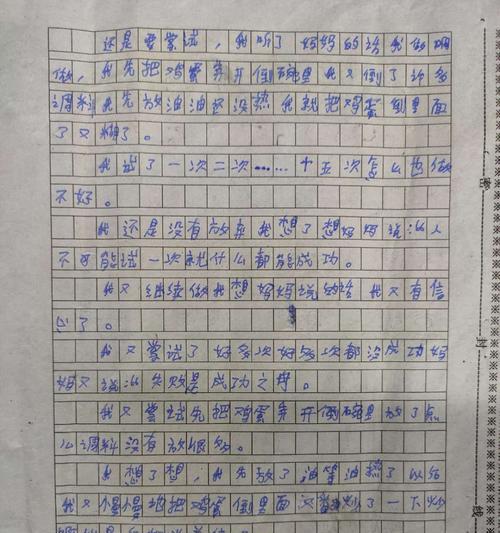 还是要尝试，我听了妈妈的话我做啊
做，我先把鸡蛋弄开倒碗里我又倒了许多
调料我先放油油还没热我就把鸡蛋倒里面
了又糊了。
我试了一次二次……十五次怎么也做
不好。
我还是没有放弃我想了想妈妈说：“人
不可能试一次就什么都能成功。
我又继续做我想妈妈说的话我又有信
心了。
我又尝试了好多次好多次都没成功妈
妈又说：“失败是成功之母。
我又尝试先把鸡蛋弄开倒碗里放了点
么调料没有放很多。
我想了想，我先放了油等油热了以后
我又慢慢地把鸡蛋倒里面又炒了一下炒
密
封
线